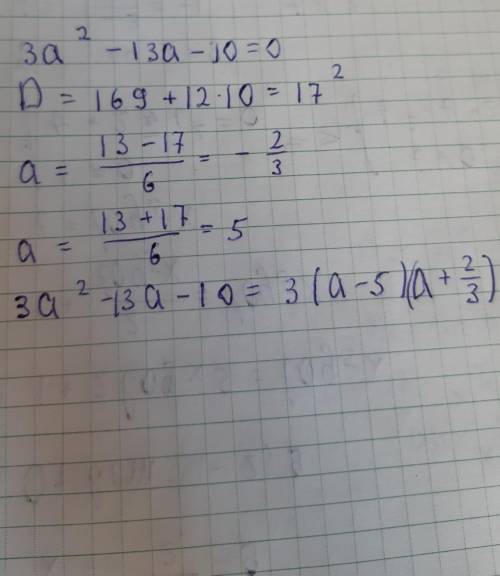 3a² - 13a - 10 = 0
D = 169 + 12·10 = 17²
a = (13 - 17)/6 = - 2/3
a = (13 + 17)/6 = 5
3a² - 13a - 10 = 3(a - 5)(a + 2/3)